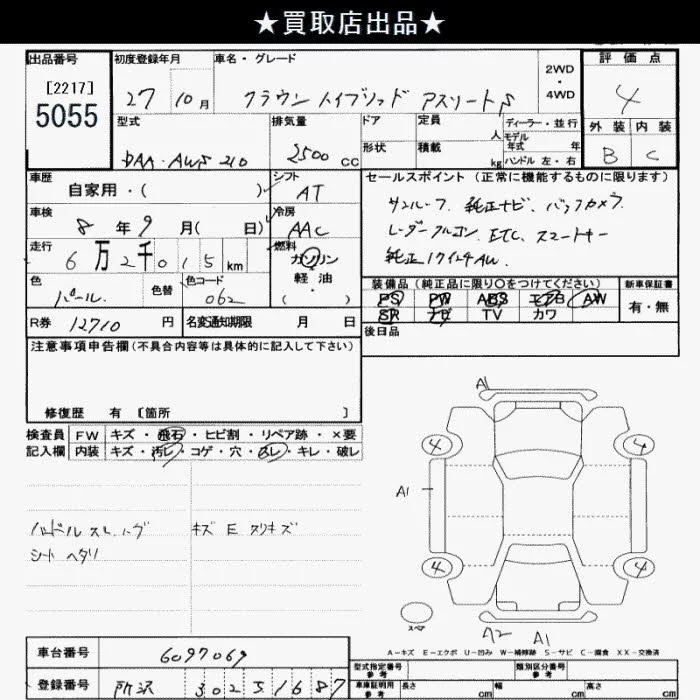 ★買取店出品★
出品番号
[2217]
5055
初度登録年月
27 10月
車名・グレード
クラウン ハイブリッド アスリートS
2WD
・
4WD
評価点
4
外装 内装
B C
型式
DAA・AWS210
排気量
2500 CC
ドア
形状
定員
人
積載
kg
ディーラー・並行
モデル
年式 年
ハンドル 左・右
車歴
自家用・( )
シフト
AT
車検
8年 9月( 日)
冷房
AAC
走行
6万2千015km
燃料
ガソリン
・
軽油
( ・ )
色
パール
色替
色コード
062
R券 12710円
名変通知期限 月 日
セールスポイント (正常に機能するものに限ります)
サンルーフ、純正ナビ、バックカメラ
レーダークルコン、ETC、スマートキー
純正17インチAW
装備品 (純正品に限り○をつけてください)
PS PW ABS エアB AW
SR ナビ TV カワ
新車保証書
有・無
後日品
注意事項申告欄 (不具合内容等は具体的に記入して下さい)
修復歴 有 [箇所 ]
検査員
記入欄
FW キズ・飛石・ヒビ割・リペア跡・×要
内装 キズ・汚レ・コゲ・穴・スレ・キレ・破レ
ハンドルスレ、ハゲ
シートヘタリ
キズ E スリキズ
A1
4
4
A1
4
4
スペア
A2 A1
A-キズ E-エクボ U-凹み W-補修跡 S-サビ C-腐食 XX-交換済
車台番号
6097069
登録番号
所沢 302 す 1687
型式指定番号
参考
類別区分番号
参考
車庫証明用
参考
長さ cm
幅 cm
高さ cm